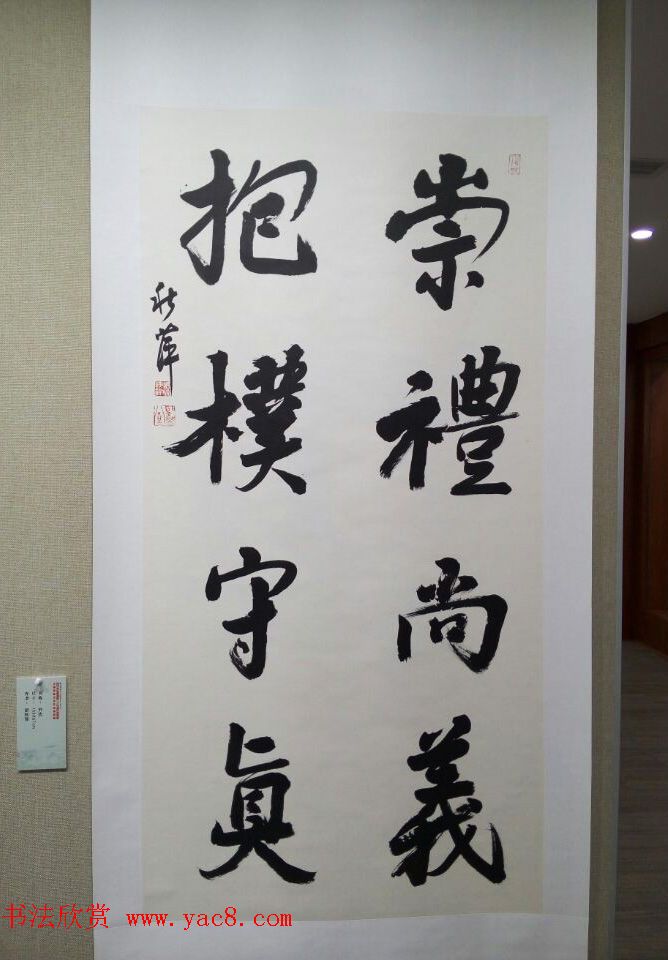 崇禮尚義
抱樸守眞
秋萍
书法欣赏 www.yac8.com